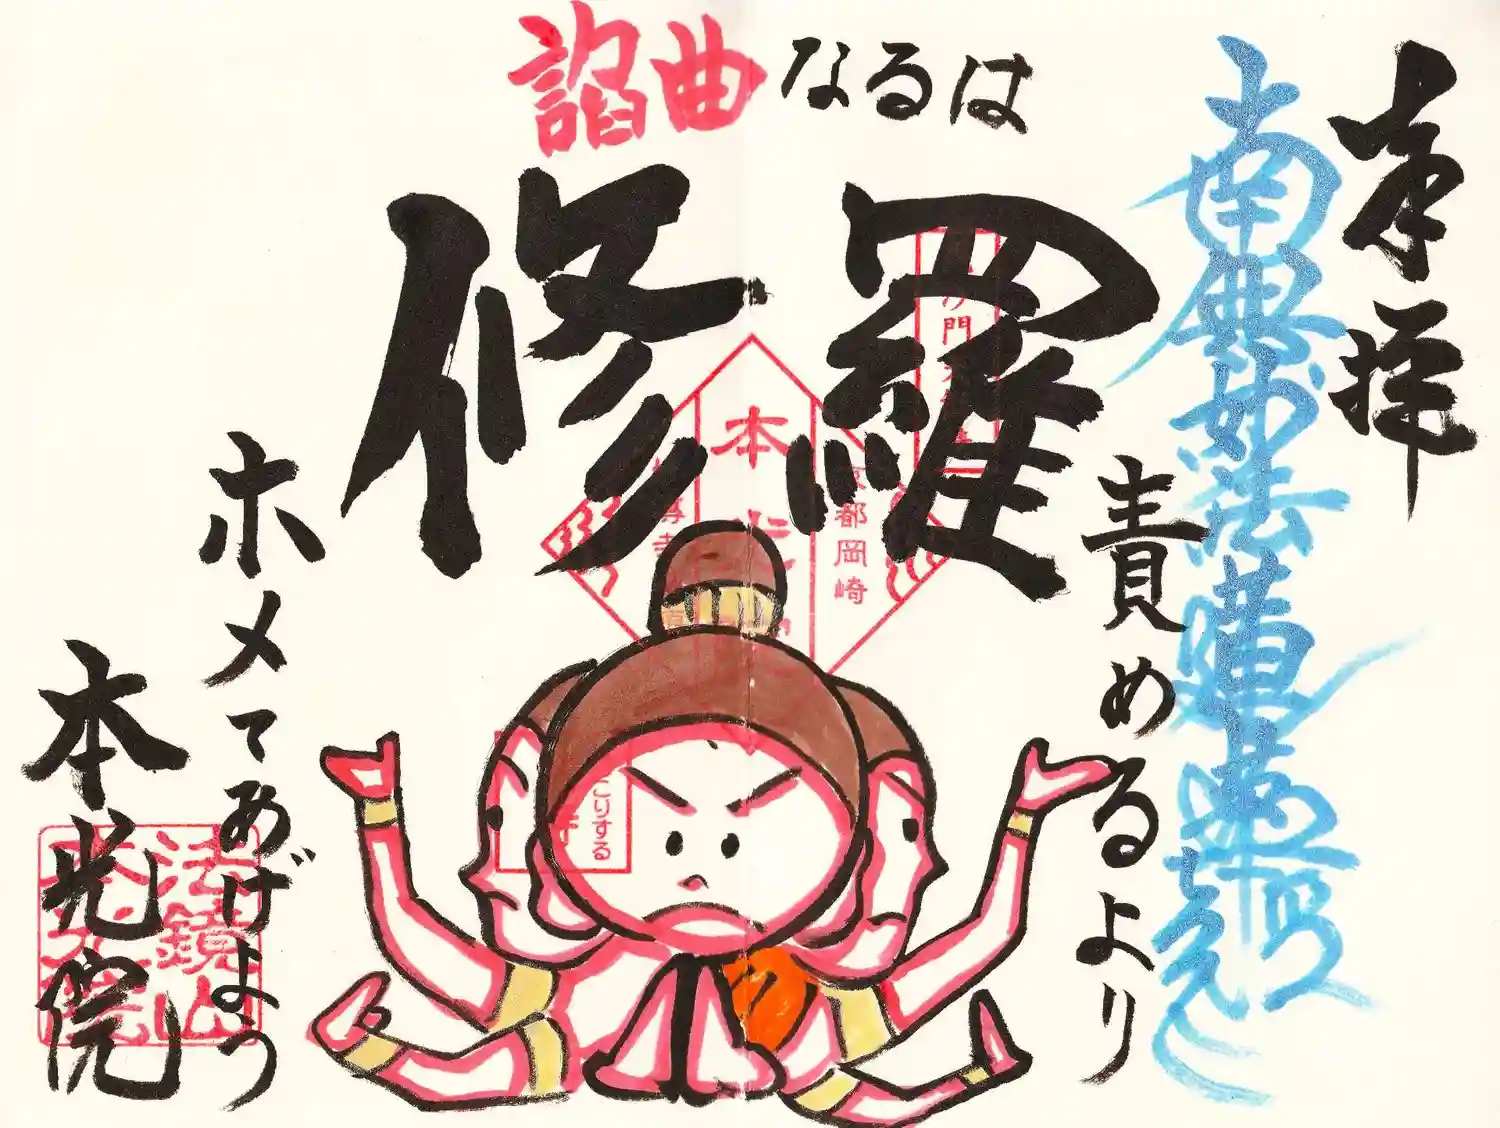 奉拝
南無妙法蓮華経
諂曲なるは
修羅
責めるより
ホメてあげよう
本光院
法鏡山
京都岡崎
本
門
こりする